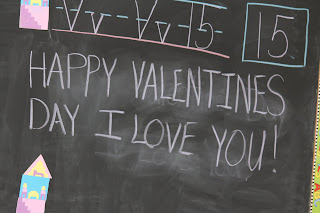 Vv - Vv 15 - 15
HAPPY VALENTINES
DAY I LOVE YOU!